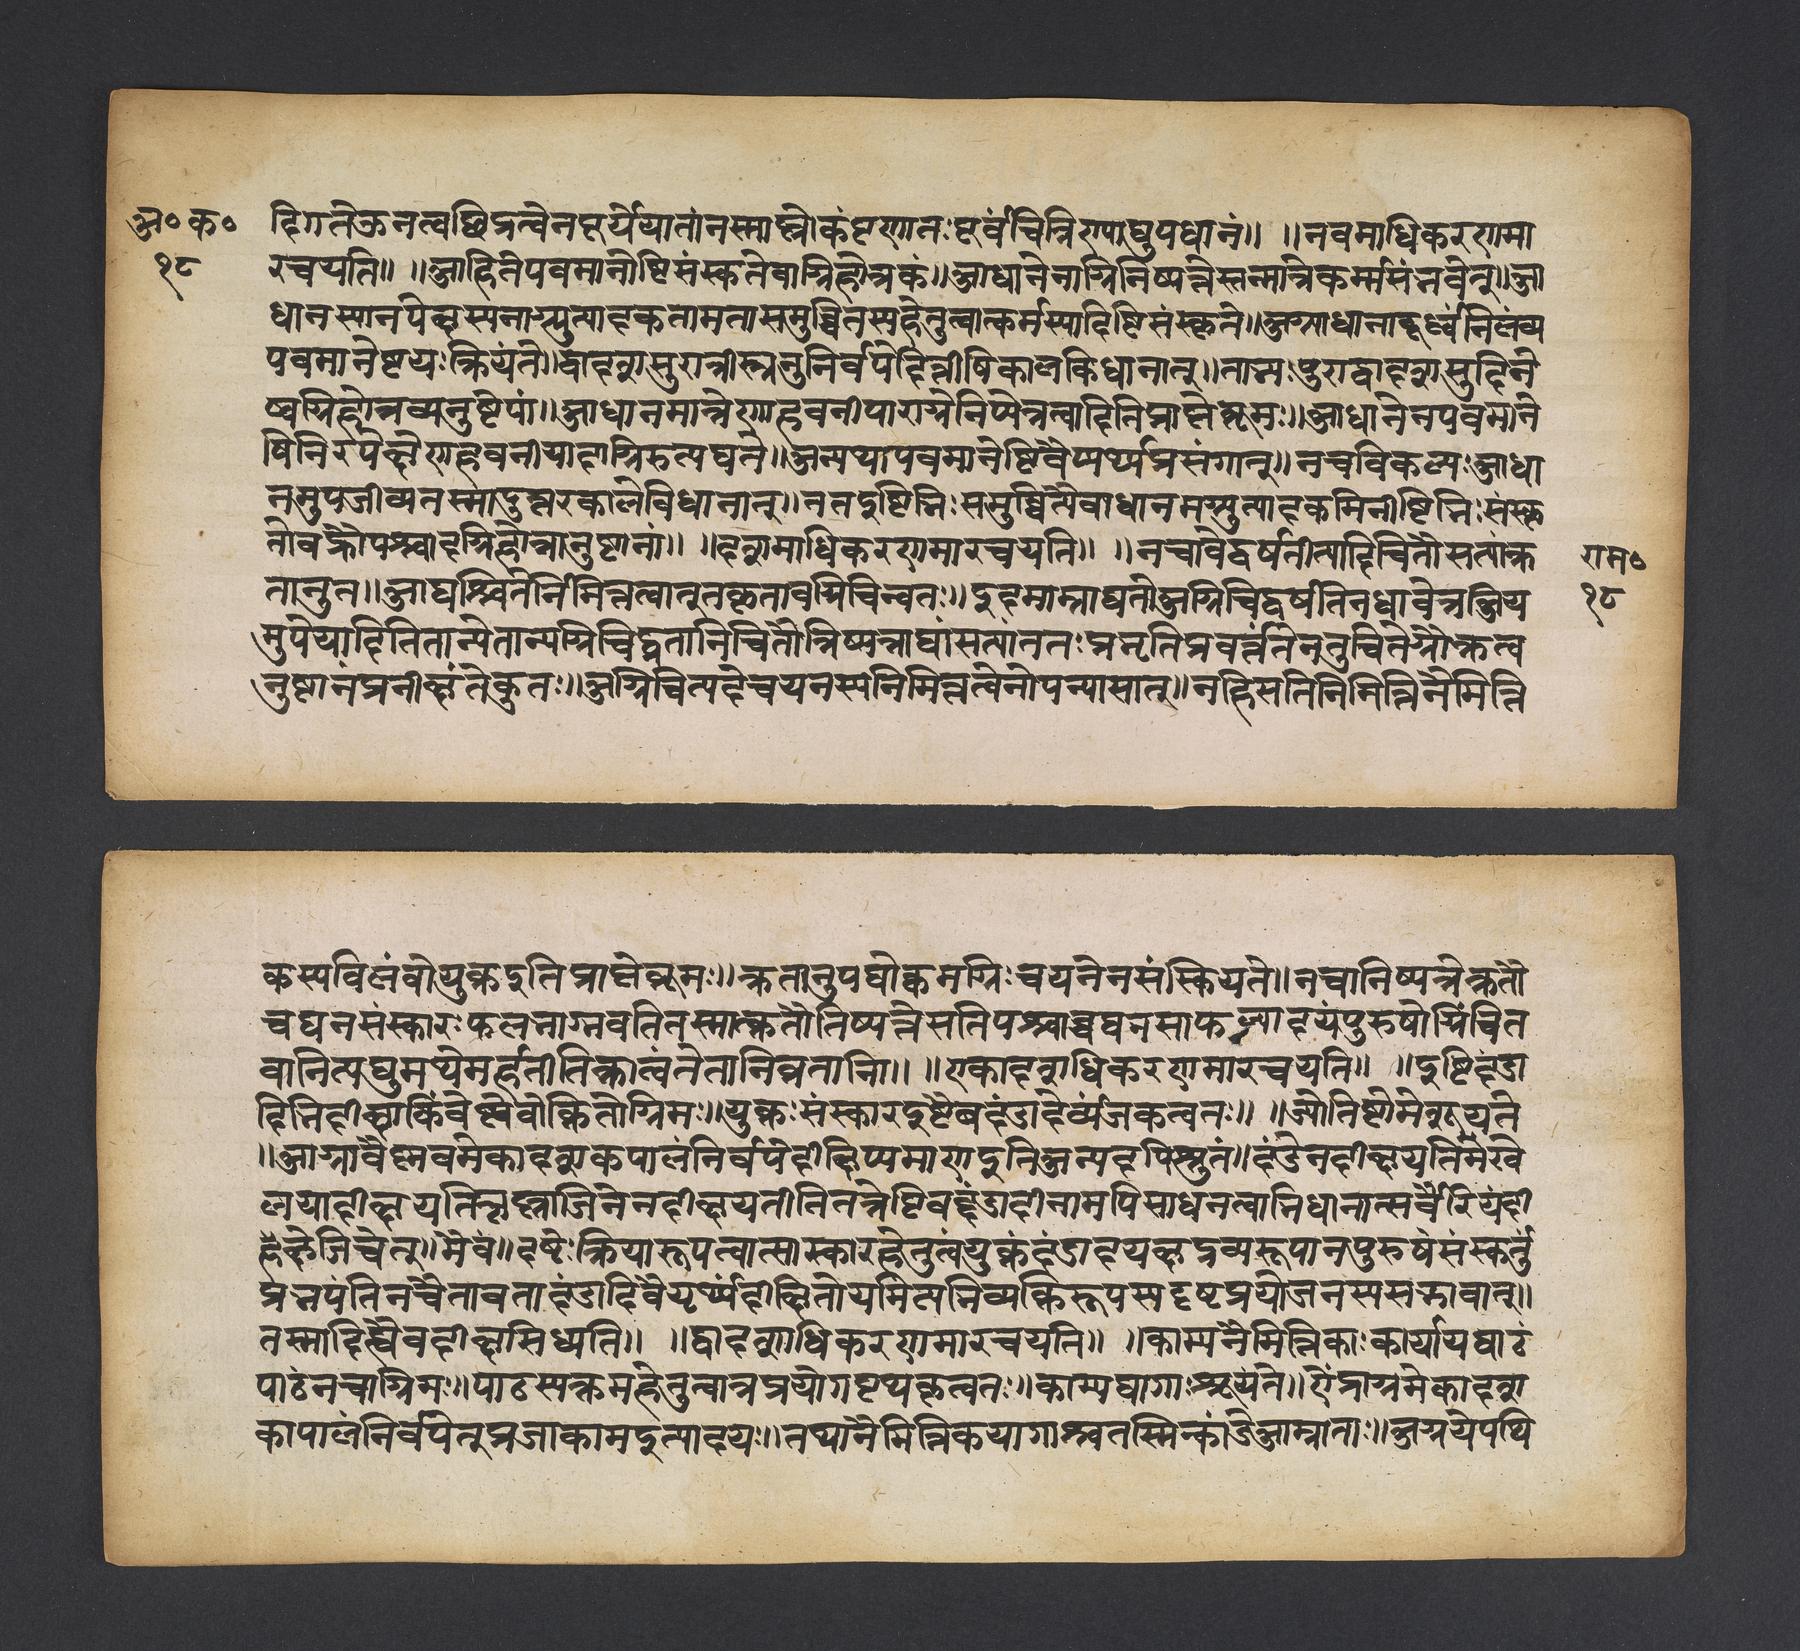 अ० क०
१८
हिगतेक्रनत्वछिद्रत्वेनपूर्येयातांतस्माल्लोकंपृणातःपूर्वंचित्रिण्याद्युपधानं॥ ॥नवमाधिकरणमा
रचयति॥ ॥आहितेपवमानेष्टिसंस्कतेवाग्निहोत्रकं॥आधानेनाग्निनिष्पत्तेस्तन्मात्रेकर्म्मसंभवेत्॥आ
धानस्यानपेक्षस्यनाग्न्युत्पादकतामतासमुच्चितस्यहेतुत्वात्कर्मस्यादिष्टिसंस्कृते॥अग्न्याधानादूर्ध्वंनिलंब्य
पवमानेष्टयःक्रियंते॥द्वादशसुरात्रीस्वनुनिर्वपेदित्रीषिकालविधानात्॥ताभ्यःपुराद्वादशसुदिने
ष्वग्निहोत्रव्यनुष्टेयां॥आधानमात्रेणाहवनीयाराग्नेनिष्पेन्नत्वादितिप्राप्तेब्रूमः॥आधानेनपवमाने
षिनिरपेक्षेणाहवनीयाद्यग्निरुत्पद्यते॥अन्यथापवमानेष्टिवैय्यर्थ्यप्रसंगात्॥नचविकल्पःआधा
नमुपजीव्यतस्मादुत्तरकालेविधानात्॥ततइष्टिभिःसमुच्चित्यैवाधानमग्न्युत्पादकमितीष्टिभिः संस्कृ
तेवक्नौपश्चादग्निहोत्रानुष्टानं॥ ॥दशमाधिकरणमारचयति॥ ॥नचावेद्वर्षतीत्यादिचितौसत्यांक्र
तानुत॥आद्यश्चितेर्निमित्तत्वात्नतत्कृतावग्निचिन्वतः॥इदमाम्नाद्यतेअग्निचिद्वर्षतिनधावेत्रस्त्रिय
मुपेयादितितान्येतान्यग्निचिद्व्रतानिचितौनिष्पन्नाद्यांसत्यांततःप्रभृतिप्रवर्त्तंतेनतुचितेग्नौक्रत्व
नुष्टानंप्रतीक्षंतेकुतः॥अग्निचित्पदेचयनस्यनिमित्तत्वेनोपन्यासात्॥नहिसतिनिमित्तेनैमित्ति
राम०
१८
कस्यविलंबोयुक्तइतिप्राप्तेब्रूमः॥क्रतानुपयोक्तमग्निःचयनेनसंस्क्रियते॥नचानिष्पन्नेक्रतौ
चयनसंस्कारःफलनाग्भवतितस्मात्क्रतौनिष्पन्नेसतिपश्चाच्चयनसाफल्यादयंपुरुषोग्निंचित
वानित्यद्युमर्थमर्हतीतिक्रात्वंतेतानिव्रतानि॥ ॥एकादशाधिकरणमारचयति॥ ॥इष्टिदंडा
दिभिर्दीक्षाकिंवेष्ट्यैवोक्तितोग्निमः॥युक्तःसंस्कारइष्टैवदंडादेर्व्यंजकत्वतः॥ ॥ज्योतिष्टोमेश्रूयते
॥आग्नावैष्णवमेकादशकपालंनिर्वपेद्दीक्षिष्यमाणइतिअन्यदपिश्रुतं॥दंडेनदीक्षयतिमेखे
लयादीक्षयतिकृष्णाजिनेनदीक्षयतीतितत्रेष्टिवद्दंडादीनामपिसाधनत्वाभिधानात्सर्वैरियंदी
क्षेतिचेत्॥मैवं॥इष्टेःक्रियारूपत्वात्संस्कारहेतुत्वंयुक्तंदंडादयक्षद्रव्यरूपानपुरुषंसंस्कर्तुं
प्रभवंतिनचैतावतादंडादिवैयर्थ्यंदीक्षितोयमित्यभिव्यक्तिरूपस्यदृष्टप्रयोजनस्यसद्भावात्॥
तस्मादिष्ट्यैवदीक्षासिध्यति॥ ॥द्वादशाधिकरणमारचयति॥ ॥काम्यनैमित्तिकाःकार्यायथापाठं
पाठंनचाग्निमः॥पाठस्यक्रमहेतुत्वान्नप्रयोगपृथक्त्वतः॥काम्ययागाःश्रूयंते॥ऐंद्राग्नमेकादश
कापालंनिर्वपेत्प्रजाकामइत्यादयः॥तथानैमित्तिकयागाश्चतस्मिन्कांडेआम्नाताः॥अग्नयेपथि